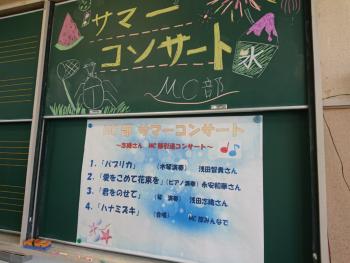 サマー
コンサート
氷
MC部
MC部 サマーコンサート
1.「パプリカ」 （木琴演奏） 浅田智貴さん
2.「愛をこめて花束を」（ピアノ演奏）永安和華さん
3.「君をのせて」 演奏） 浅田志緒さん
4.「ハナミズキ」 （合唱） MC部みんなで